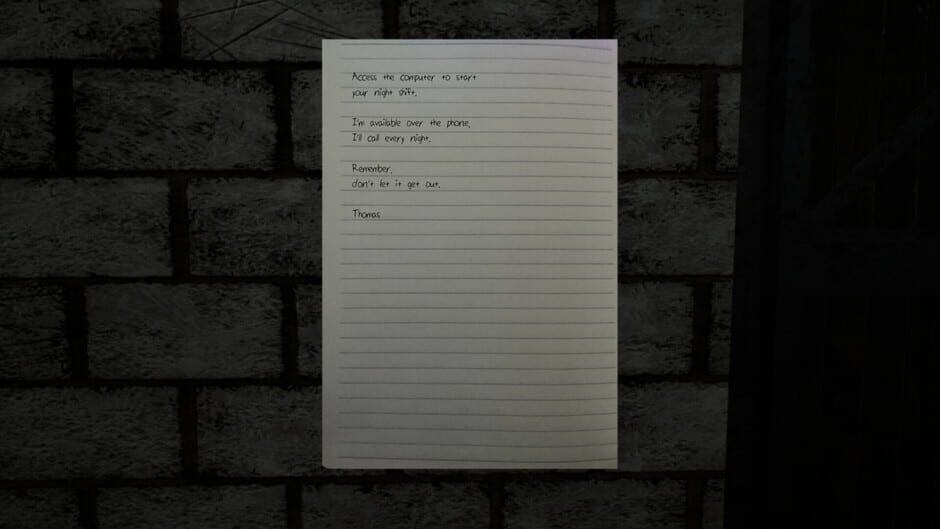 Access the computer to start
your night shift.
I'm available over the phone,
I'll call every night.
Remember,
don't let it get out.
Thomas